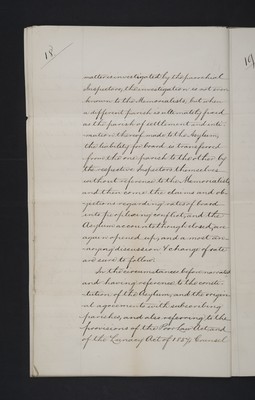 18.
19
matter is investigated by the parochial
Inspectors, the investigation is not even
known to the Memorialists, but when
a different parish is ultimately fixed
as the parish of settlement and inti-
mation thereof made to the Asylum,
the liability for board is transferred
from the one parish to the other by
the respective Inspectors themselves
without reference to the Memorialists,
and then come the claims and ob-
jections regarding rates of board
into perplexing conflict, and the
Asylum accounts though closed, are
again opened up, and a most un-
happy discussion & change of rate
are sure to follow.
In the circumstances before narrated
and having reference to the consti-
tution of the Asylum, and the origin-
al agreements with subscribing
parishes, and also referring to the
provisions of the Poor Law Act and
of the Lunacy Act of 1857, Counsel